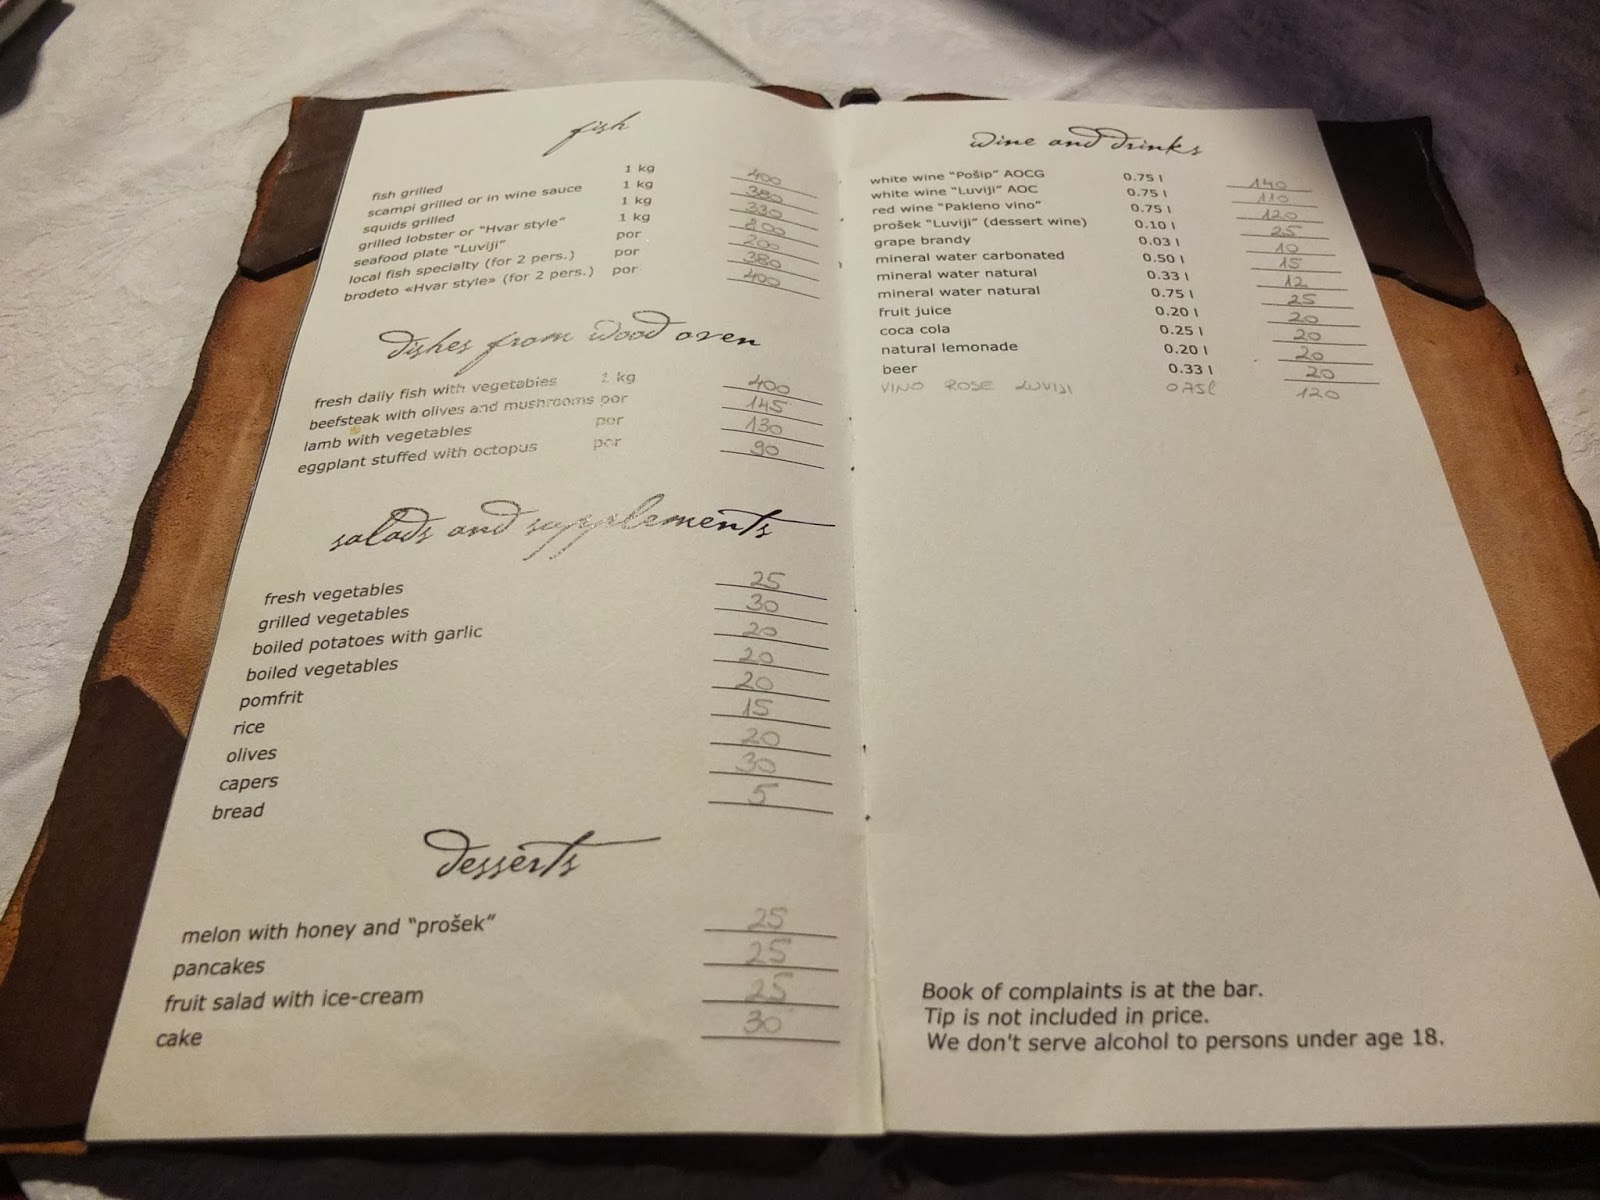 fish
fish grilled 1 kg 400
scampi grilled or in wine sauce 1 kg 380
squids grilled 1 kg 330
grilled lobster or “Hvar style” 1 kg 800
seafood plate “Luviji” por 200
local fish specialty (for 2 pers.) por 380
brodeto «Hvar style» (for 2 pers.) por 400
dishes from wood oven
fresh daily fish with vegetables 1 kg 400
beefsteak with olives and mushrooms por 145
lamb with vegetables por 130
eggplant stuffed with octopus por 90
salads and supplements
fresh vegetables 25
grilled vegetables 30
boiled potatoes with garlic 20
boiled vegetables 20
pomfrit 20
rice 15
olives 20
capers 30
bread 5
desserts
melon with honey and “prošek” 25
pancakes 25
fruit salad with ice-cream 25
cake 30
wine and drinks
white wine “Pošip” AOCG 0.75 l 140
white wine “Luviji” AOC 0.75 l 110
red wine “Pakleno vino” 0.75 l 120
prošek “Luviji” (dessert wine) 0.10 l 25
grape brandy 0.03 l 10
mineral water carbonated 0.50 l 15
mineral water natural 0.33 l 12
mineral water natural 0.75 l 25
fruit juice 0.20 l 20
coca cola 0.25 l 20
natural lemonade 0.20 l 20
beer 0.33 l 20
VINO ROSE LUVIJI 0.75l 120
Book of complaints is at the bar.
Tip is not included in price.
We don't serve alcohol to persons under age 18.